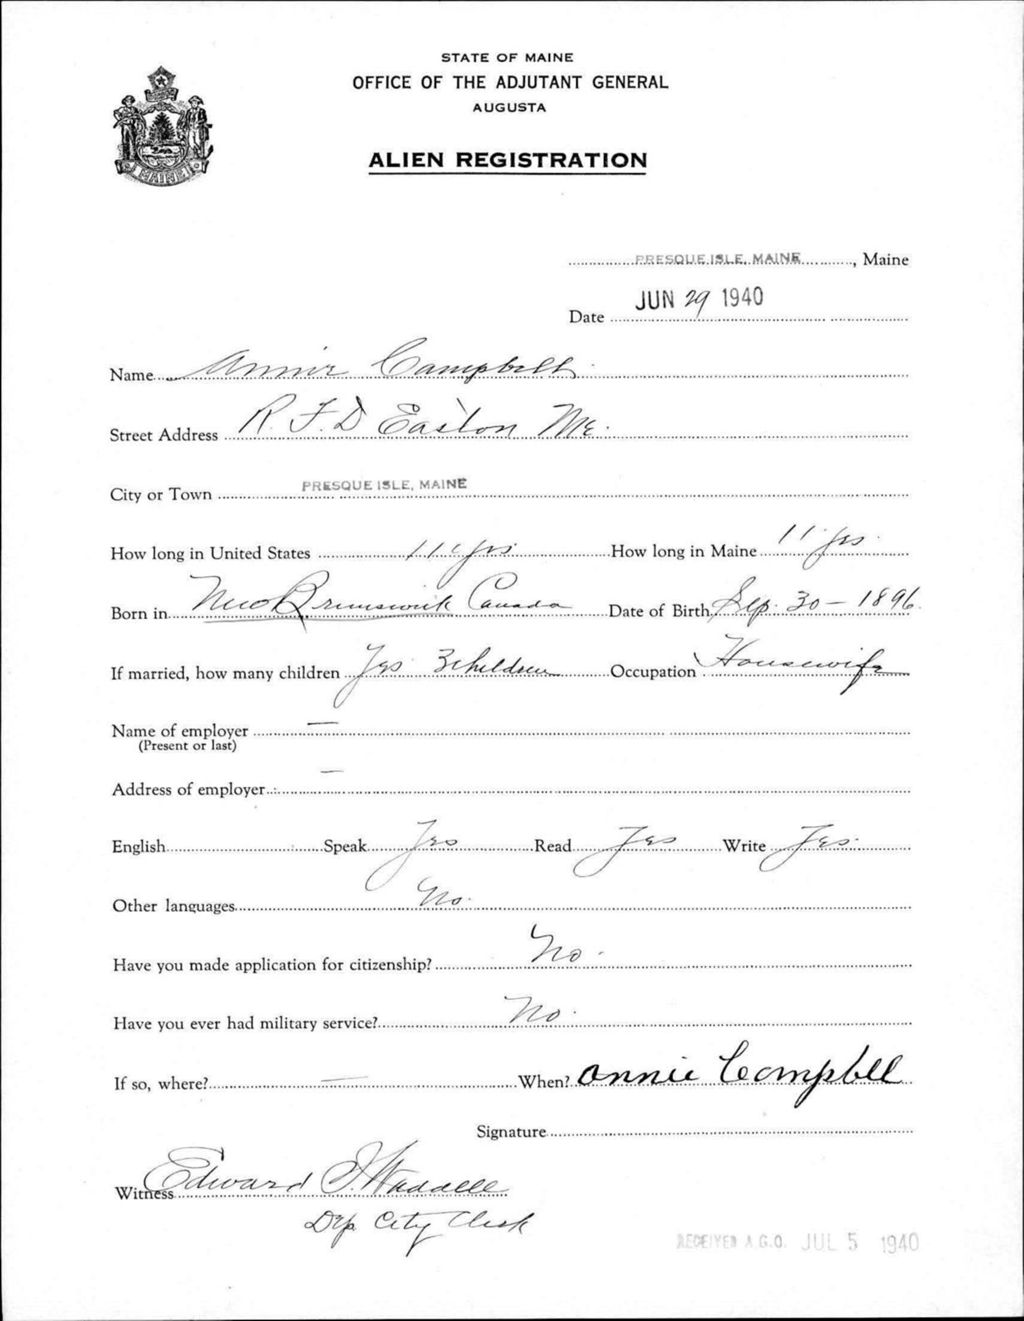 STATE OF MAINE
OFFICE OF THE ADJUTANT GENERAL
AUGUSTA
ALIEN REGISTRATION
MAINE
PRESQUE ISLE, MAINE, Maine
Date JUN 29 1940
Name Annie Campbell
Street Address R.F.D Easton Me.
City or Town PRESQUE ISLE, MAINE
How long in United States 11 yrs How long in Maine 11 yrs
Born in New Brunswick Canada Date of Birth Sep. 30 - 1896
If married, how many children Yes 3 children Occupation Housewife
Name of employer —
(Present or last)
Address of employer —
English Speak Yes Read Yes Write Yes.
Other languages No.
Have you made application for citizenship? No.
Have you ever had military service? No.
If so, where? — When? Annie Campbell
Signature
Witness Edward J. Waddell
Dep City Clerk
RECEIVED A.G.O. JUL 5 1940